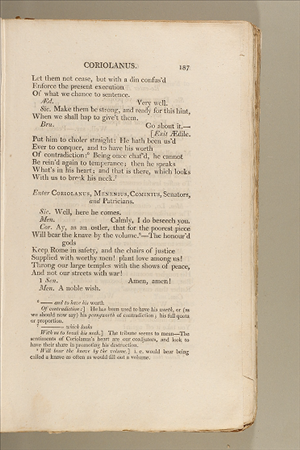 CORIOLANUS. 187
Let them not cease, but with a din confus'd
Enforce the present execution
Of what we chance to sentence.
Æd. Very well.
Sic. Make them be strong, and ready for this hint,
When we shall hap to give't them.
Bru. Go about it.—
[Exit Ædile.
Put him to choler straight: He hath been us'd
Ever to conquer, and to have his worth
Of contradiction: Being once chaf'd, he cannot
Be rein'd again to temperance; then he speaks
What's in his heart; and that is there, which looks
With us to break his neck.
Enter CORIOLANUS, MENENIUS, COMINIUS, Senators,
and Patricians.
Sic. Well, here he comes.
Men. Calmly, I do beseech you.
Cor. Ay, as an ostler, that for the poorest piece
Will bear the knave by the volume.—The honour'd
gods
Keep Rome in safety, and the chairs of justice
Supplied with worthy men! plant love among us!
Throng our large temples with the shows of peace,
And not our streets with war!
1 Sen. Amen, amen!
Men. A noble wish.
—— and to have his worth
Of contradiction:] He has been used to have his worth, or (as
we should now say) his pennyworth of contradiction; his full quota
or proportion.
—— which looks
With us to break his neck.] The tribune seems to mean—The
sentiments of Coriolanus's heart are our coadjutors, and look to
have their share in promoting his destruction.
Will bear the knave by the volume.] i. e. would bear being
called a knave as often as would fill out a volume.